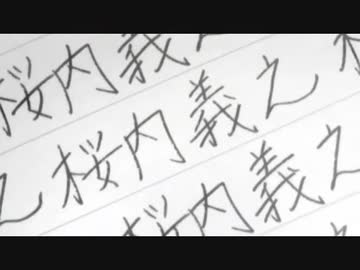 桜内義之
之桜内義之桜
之桜内義之